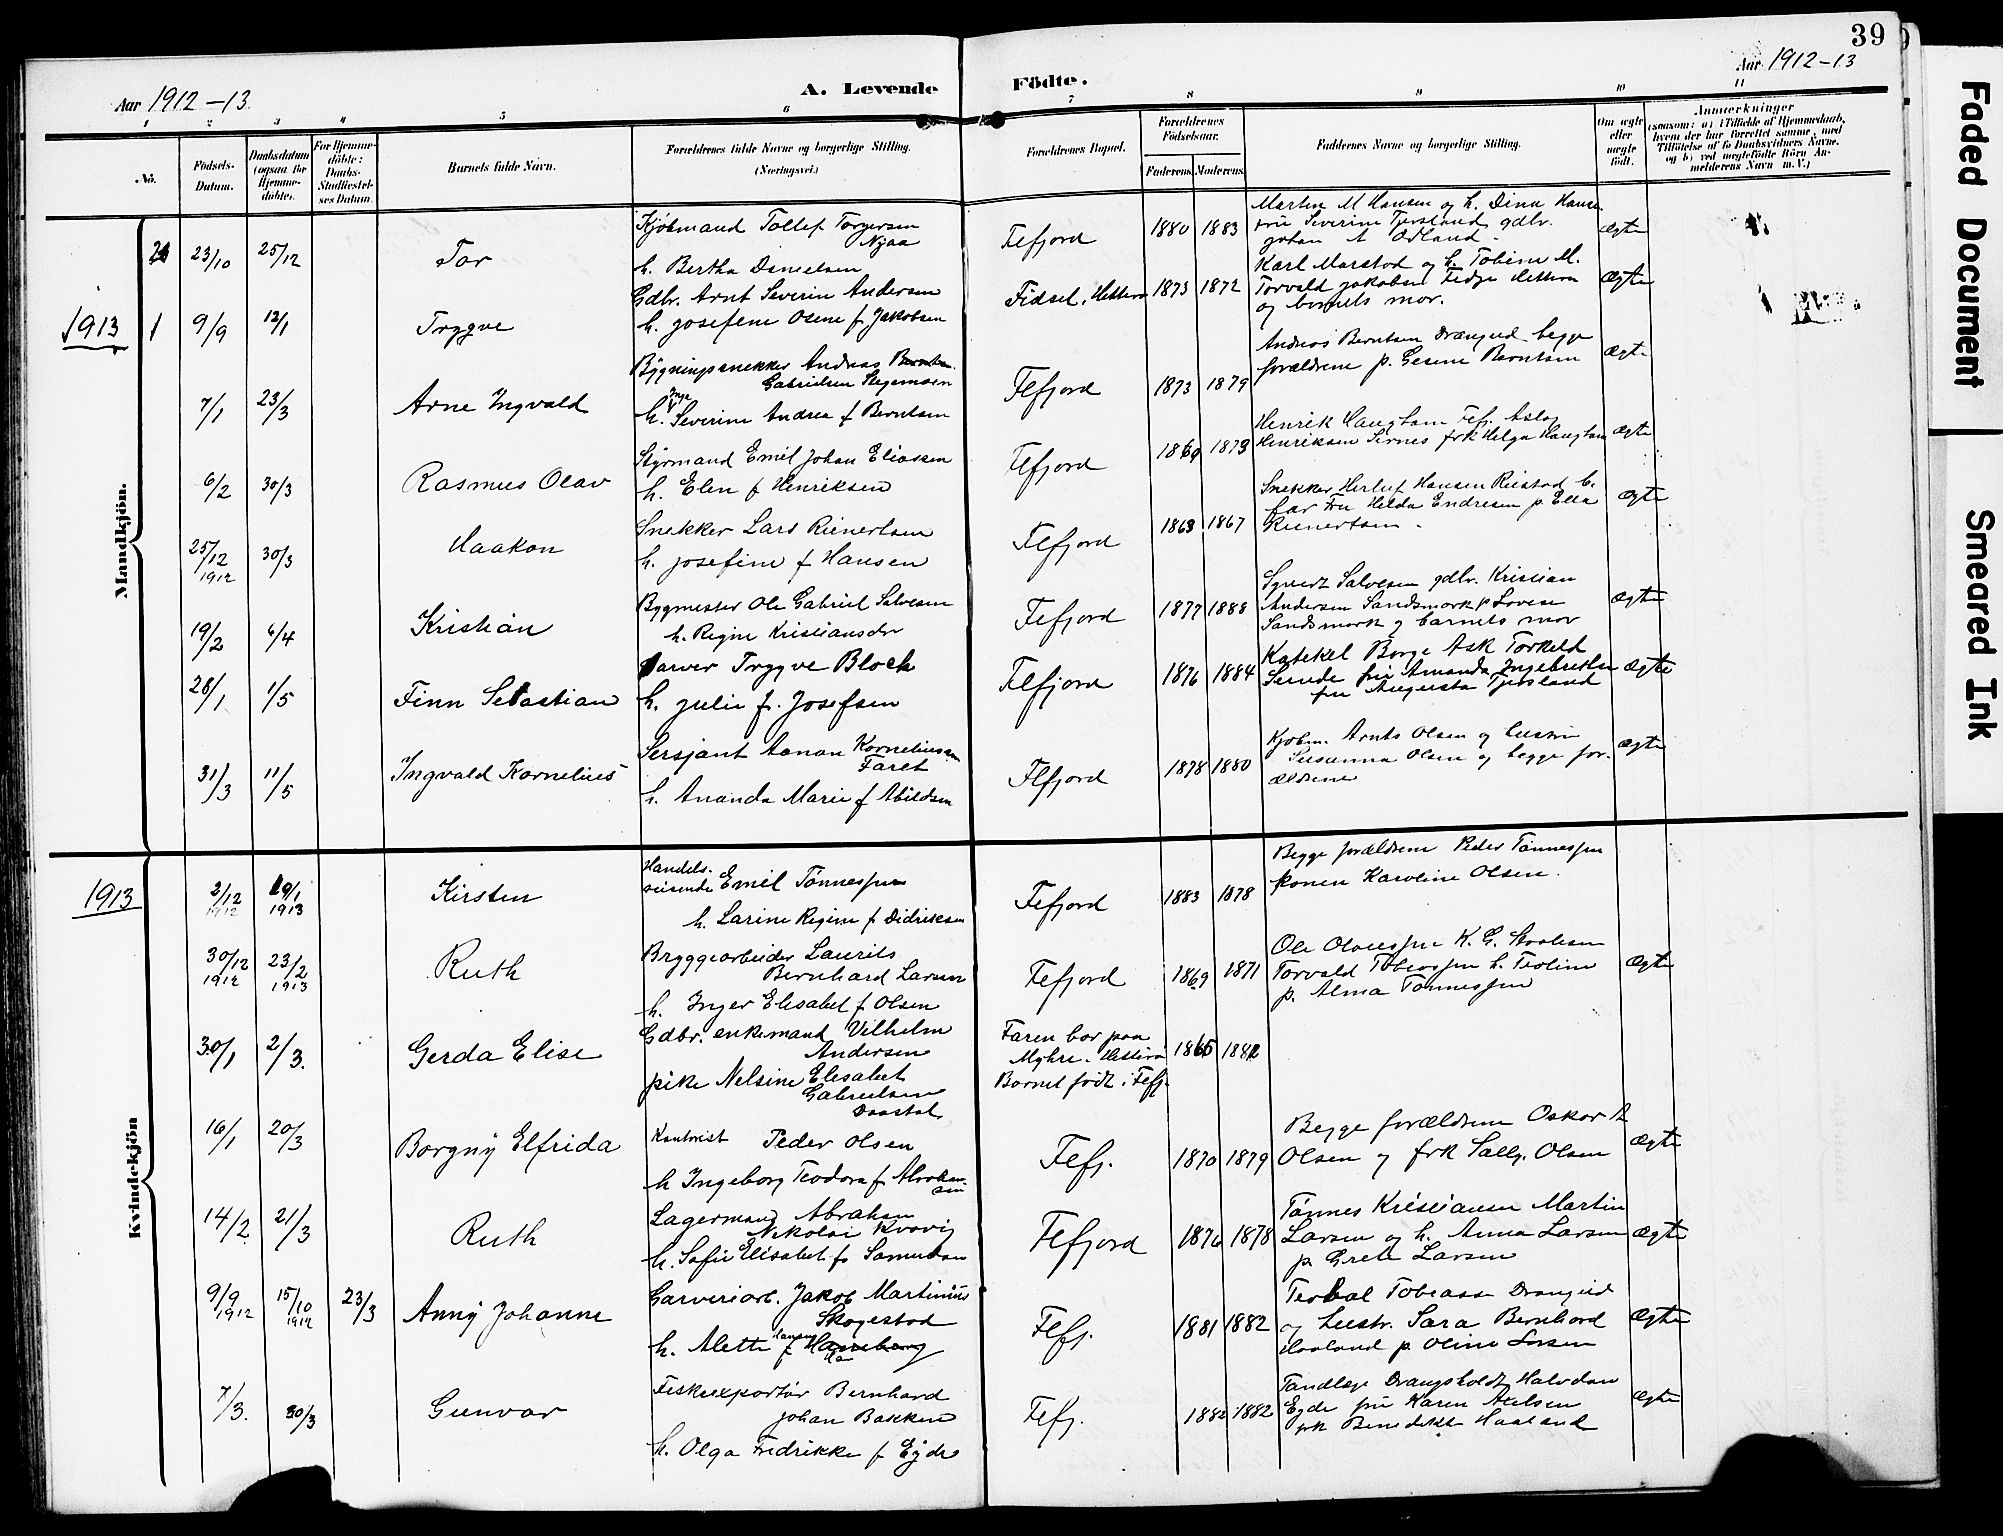 39
Aar 1912-13.
A. Levende Födte.
Aar 1912-13
1 2 3 4 5 6 7 8 9 10 11
No.
Födsels-Datum.
Daabsdatum (ogsaa for Hjemmedöbte).
For Hjemmedöbte: Daabs-Stadfæstelses Datum.
Barnets fulde Navn.
Forældrenes fulde Navne og borgerlige Stilling. (Næringsvei.)
Forældrenes Bopæl.
Forældrenes Födselsaar.
Faderens. Moderens.
Faddernes Navne og borgerlige Stilling.
Om ægte eller uægte födt.
Anmærkninger (saasom: a) i Tilfælde af Hjemmedaab, hvem der har forrettet samme, med Tilföielse af to Daabsvidners Navne, og b) ved uægtefödte Börn Anmelderens Navn m. V.)
Mandkjön.
23/10 25/12 Tor
Kjöbmand Tollef Torgersen Njaa
h. Bertha Danielsen
Fefjord 1880 1883
Martin M Hansen og h. Dina Hanse
fru Severine Tjersland, gdbr.
Johan A Odland
ægte
1913 1 9/9 12/1 Trygve
Gdbr. Arnt Severin Andersen
h. Josefine Olene f Jakobsen
Fidsel, Hitterø 1873 1872
Karl Marstad og h. Tobine M.
Torvald Jakobsen Fedge Hitterø
og barnets mor.
ægte
7/1 23/3 Arne Ingvald
Bygningssnekker Andreas
Gabrielsen Stegemoen
h. Inga Severine Andrea f Berntsen
Flefjord 1873 1879
Andreas Berntsen Drangeid begge
forældrene p. Gesine Berntsen
ægte
6/2 30/3 Rasmus Olav
Styrmand Emil Johan Eliassen
h. Elen f Henriksen
Flefjord 1869 1873
Henrik Haughom Fefj. Aslag
Henriksen Sirnes frk Helga Haughom
ægte
25/12 1912 30/3 Haakon
Snekker Lars Reinertsen
h. Josefine f Hansen
Flefjord 1863 1867
Snekker Herluf Hansen Rustad b.
far Fru Helda Endresen p. Ella
Reinertsen.
ægte
19/2 6/4 Kristian
Bygmester Ole Gabriel Salvesen
h. Regine Kristiansdr
Fefjord 1877 1888
Syvert Salvesen gdbr. Kristian
Andersen Sandsmork p Lovise
Sandsmork og barnets mor
ægte
28/1 1/5 Finn Sebastian
Garver Trygve Bloch
h. Julie f. Josefsen
Flefjord 1876 1884
Katekel Borge Ask Torkeld
Sunde fru Amanda Ingebretsen
fru Augusta Tjersland
ægte
31/3 11/5 Ingvald Kornelius
Sersjant Aanon Korneliussen
Faret
h. Ananda Marie f Abildsen
Flfjord 1878 1880
Kjöbm. Arnts Olsen og hustru
Susanna Olsen og begge for-
ældrene
ægte
Kvindekjön
1913 2/12 1912 19/1 1913 Kirsten
Handelsreisende Emil Tönnessen
h. Larine Regine f Didriksen
Fefjord 1883 1878
Begge forældrene Peder Tönnessen
konen Karoline Olsen.
30/12 1912 23/2 1913 Ruth
Bryggearbeider Laurits
Bernhard Larsen
h. Inger Elisabet f Olsen
Fefjord 1869 1871
Ole Olaussen K. G. Staalesen
Torvald Tobiassen h. Teoline
p. Alma Tönnessen
ægte
30/1 2/3. Gerda Elise
Gdbr. enkemand Vilhelm
Andersen
pike Nelsine Elisabet
Gabrielsen
Daastøl
Faren bor paa
Myhre, Hitterø
Barnet födt i Fefj.
1865 1882
16/1 20/3 Borgny Elfrida
Kontorist Peder Olsen
h Ingeborg Teodora f Abraham-
sen
Fefj. 1870 1879
Begge forældrene Oskar A
Olsen og frk Sally Olsen
ægte
14/2 21/3 Ruth
Lagermand Abraham
Nikolai Kvavig
h. Sofie Elisabet f. Samuelsen
Flefjord 1876 1878
Tönnes Kristiansen Martin
Larsen og h. Anna Larsen
p. Grete Larsen
ægte
9/9 1912 15/10 1912 23/3 Anny Johanne
Garveriarb. Jakob Martinius
Skogestad
h. Alette f
Flefj. 1881 1882
Teobal Tobiassen Drangeid
og hustr. Sara Bernhard
Haaland p. Oline Larsen
ægte
7/3. 30/3 Gunvor
Fiskeexportör Bernhard
Johan Bakken
h. Olga Fredrikke f Eyde
Fefj. 1882 1882
Tandlæge Drangsholdt Halvdan
Egde fru Karen Axelsen
frk Benedikte Haaland
ægte
Faded Document
Smeared Ink